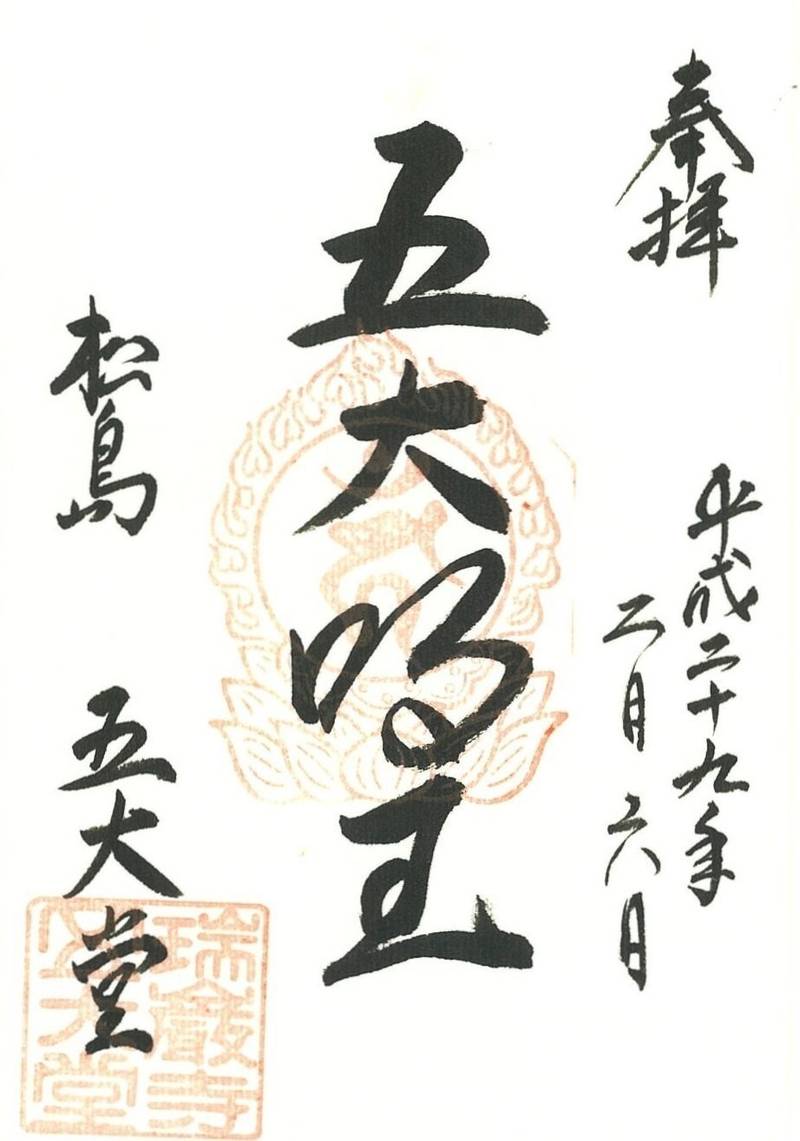 奉拝
平成二十九年
二月六日
五大明王
松島 五大堂
瑞巌寺
五大堂